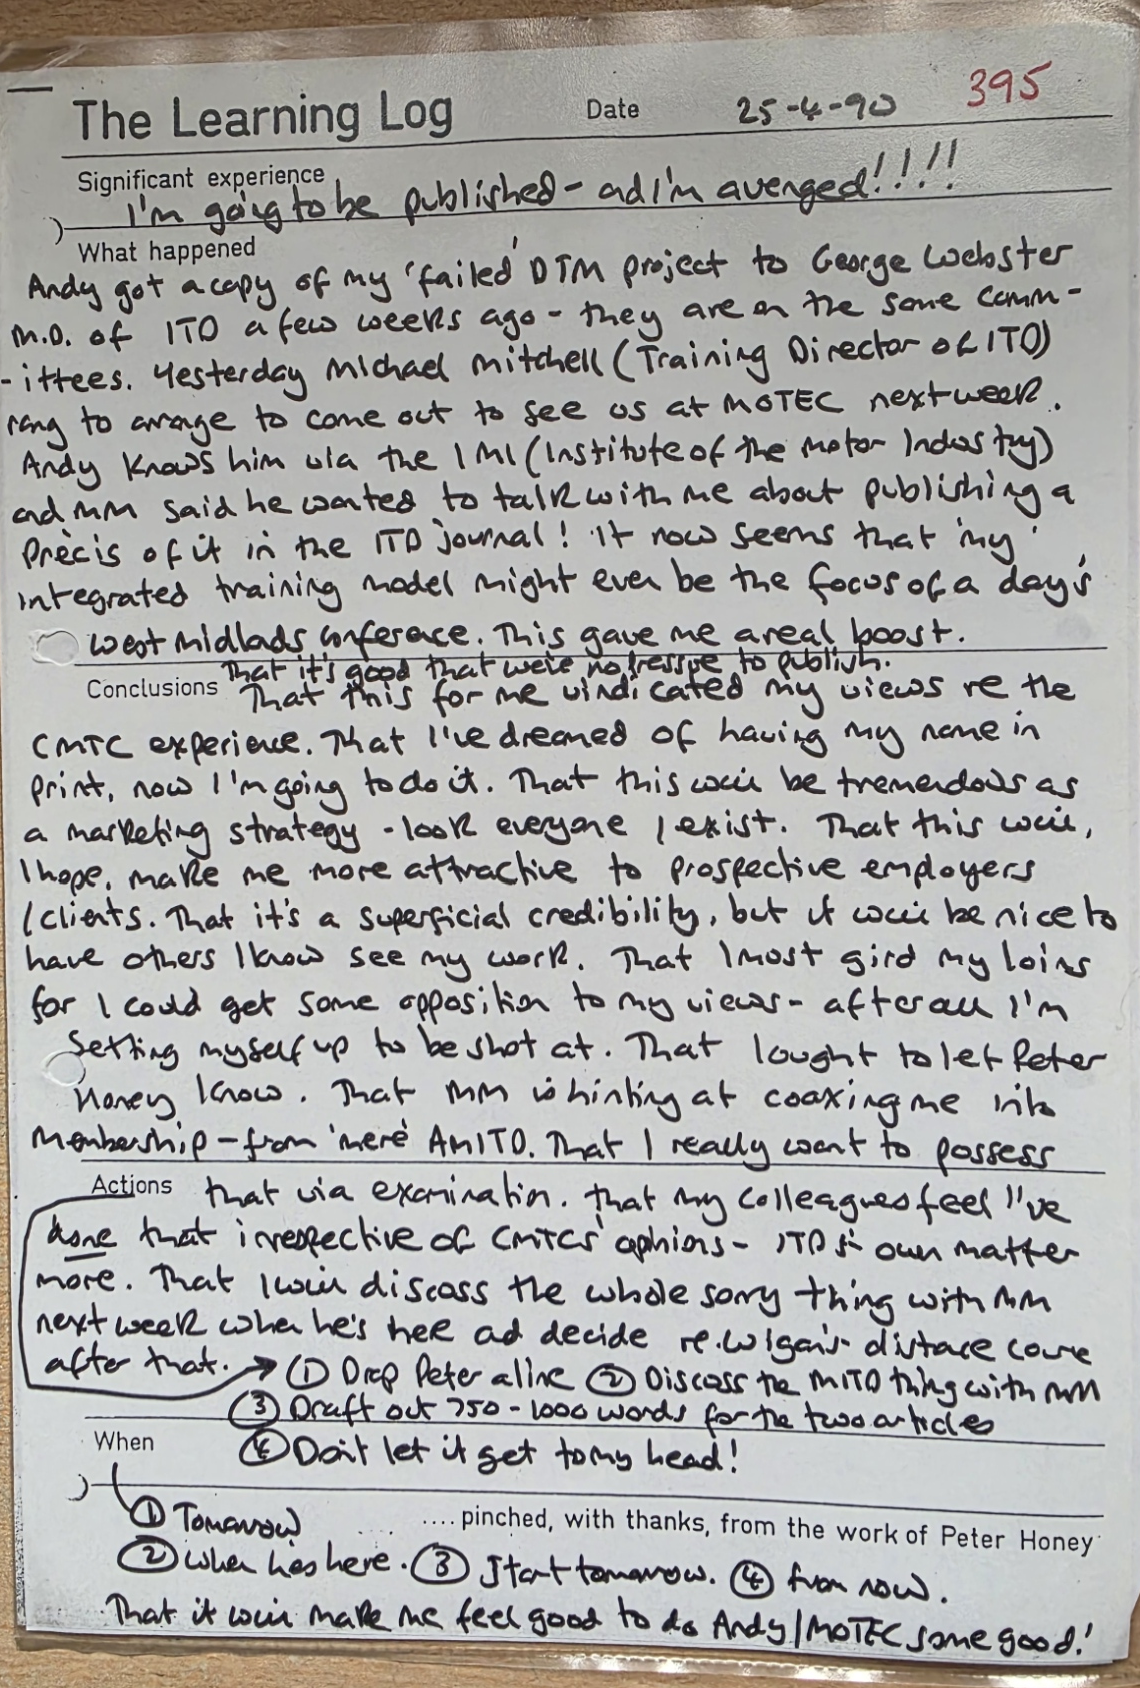 The Learning Log Date 25-4-90 395
Significant experience
I'm going to be published - ad I'm avenged!!!!!
What happened
Andy got a copy of my 'failed' DTM project to George Webster
M.D. of ITD a few weeks ago - they are on the same comm-
-ittees. Yesterday Michael Mitchell (Training Director of ITD)
rang to arrange to come out to see us at MOTEC next week.
Andy knows him via the IMI (Institute of the Motor Industry)
and MM said he wanted to talk with me about publishing a
Prècis of it in the ITD journal! It now seems that 'my'
integrated training model might even be the focus of a day's
West Midlads conference. This gave me a real boost.
That it's good that we're no pressure to publish.
Conclusions That this for me vindicated my views re the
CMTC experience. That I've dreamed of having my name in
print, now I'm going to do it. That this will be tremendous as
a marketing strategy - look everyone I exist. That this will,
I hope, make me more attractive to prospective employers
/clients. That it's a superficial credibility, but it will be nice to
have others I know see my work. That I must gird my loins
for I could get some opposition to my views - after all I'm
setting myself up to be shot at. That I ought to let Peter
Honey know. That MM is hinting at coaxing me into
Membership - from 'mere' AMITD. That I really want to possess
Actions that via examination. That my colleagues feel I've
done that irrespective of CMTCs' opinions - ITD's own matter
more. That I will discuss the whole sorry thing with MM
next week when he's here ad decide re. Wigan's distance course
after that. → ① Drop Peter a line ② Discuss the MITD thing with MM
③ Draft out 750 - 1000 words for the two articles
When ④ Don't let it get to my head!
① Tomorrow .... pinched, with thanks, from the work of Peter Honey
② When he's here. ③ Start tomorrow. ④ from now.
That it will make me feel good to do Andy/MOTEC some good!